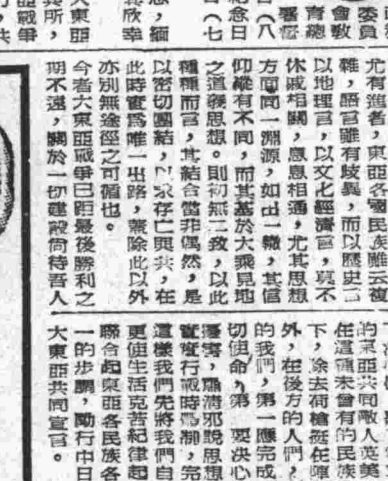 委員
會敎
育總
署督
（八
念日
（七
，緬
欣幸
大東亞
其所，
亞戰爭
，共
尤有進者，東亞各國民族雖云複
雜，語言雖有歧異，而以歷史言
以地理言，以文化經濟言，莫不
休戚相關，息息相通，尤其思想
方面同一淵源，如出一轍，其信
仰縱有不同，而其基於大乘見地
之道義思想。則初無二致，以此
種種而言，其結合當非偶然，是
以密切團結，以求存亡與共，在
此時實爲唯一出路，蕭除此以外
亦別無途徑之可循也。
今者大東亞戰爭已距最後勝利之
期不遠，關於一切建設尚待吾人
的東亞共同敵人英美
在這個未曾有的民族
下，除去荷槍挺在陣
外，在後方的人們，
的我們，第一應完成
切使命，第 要決心
害，肅清邪說思想
實實行戰時體制，完
這樣我們先將我們自
更使生活克苦紀律起
聯合起東亞各民族各
一的步驟，勵行中日
大東亞共同宣言。